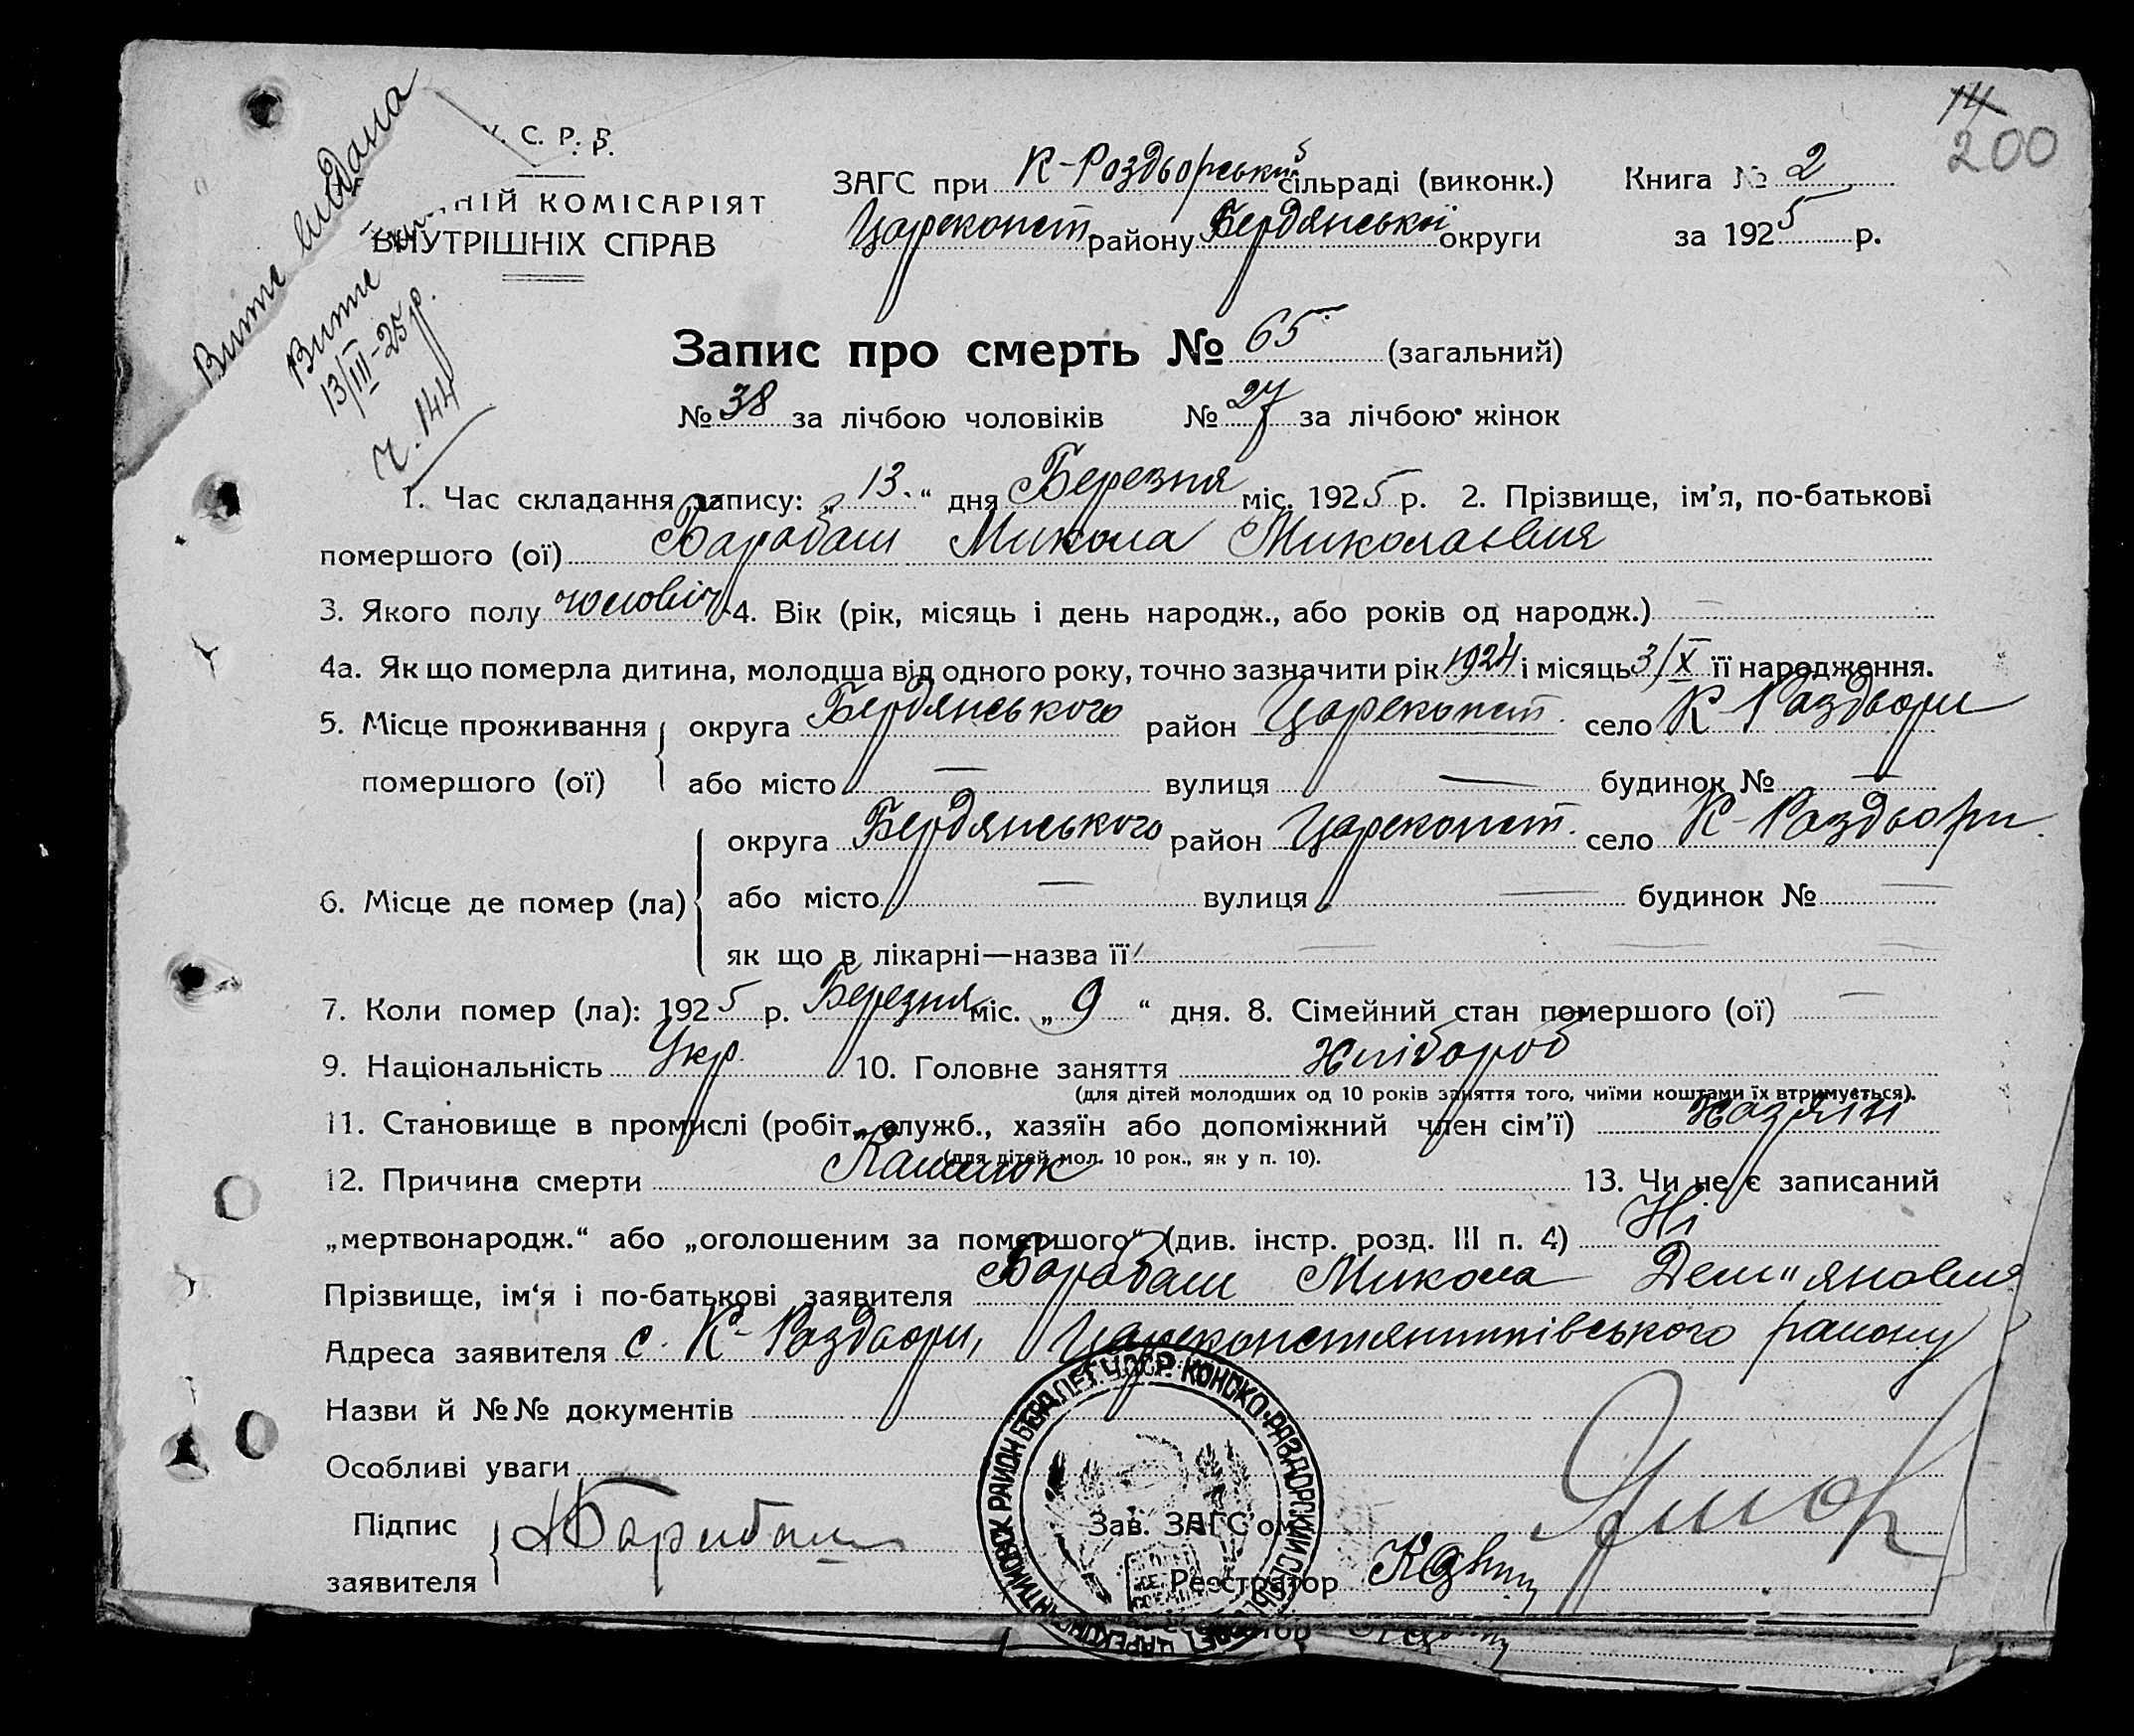 14
200
У. С. Р. Р.
ЗАГС при К-Роздьорський сільраді (виконк.) Книга № 2
НІЙ КОМІСАРІЯТ
ВНУТРІШНІХ СПРАВ
Цареконст. району Бердянської округи за 1925 р.
Витг видана
Витг
13/III-25 р.
ч. 144
Запис про смерть № 65 (загальний)
№ 38 за лічбою чоловіків № 27 за лічбою жінок
1. Час складання запису: „ 13. “ дня Березня міс. 1925 р. 2. Прізвище, ім’я, по-батькові
помершого (ої) Барабаш Микола Миколаєвич
3. Якого полу чоловіч 4. Вік (рік, місяць і день народж., або років од народж.) —
4а. Як що померла дитина, молодша від одного року, точно зазначити рік 1924 і місяць 3/X її народження.
5. Місце проживання округа Бердянського район Цареконст. село К-Роздьори
помершого (ої) або місто — вулиця — будинок № —
округа Бердянського район Цареконст. село К-Роздьори.
6. Місце де помер (ла) або місто — вулиця — будинок № —
як що в лікарні—назва її
7. Коли помер (ла): 1925 р. Березня міс. „ 9 “ дня. 8. Сімейний стан помершого (ої) —
9. Національність Укр. 10. Головне заняття Хлібороб
(для дітей молодших од 10 років заняття того, чиїми коштами їх втримується).
11. Становище в промислі (робіт., служб., хазяїн або допоміжний член сім’ї) Хазяїн
(для дітей мол. 10 рок., як у п. 10).
12. Причина смерти Кашлюк 13. Чи не є записаний
„мертвонародж.“ або „оголошеним за помершого“ (див. інстр. розд. III п. 4) Ні
Прізвище, ім‘я і по-батькові заявителя Барабаш Микола Дем"янович
Адреса заявителя с. К-Роздьори, Цареконстянтинівського району
Назви й №№ документів
Особливі уваги
Підпис
заявителя
Барабаш
Зав. ЗАГС’ом
Реєстратор
РАЙОН БЕРД. У.С.С.Р. КОНСКО-РАЗДОРСКИЙ